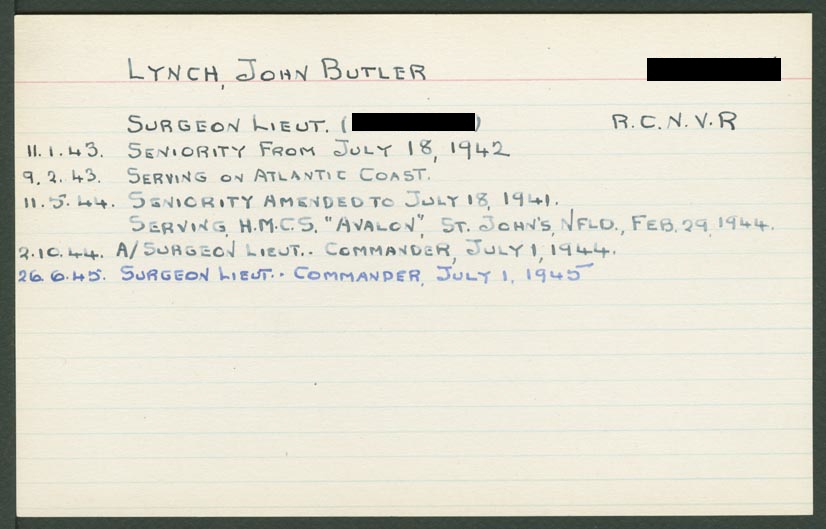 LYNCH, JOHN BUTLER
SURGEON LIEUT. ( ) R.C.N.V.R
11.1.43. SENIORITY FROM JULY 18, 1942
9.2.43. SERVING ON ATLANTIC COAST.
11.5.44. SENIORITY AMENDED TO JULY 18, 1941.
SERVING, H.M.C.S. "AVALON", ST. JOHN'S, NFLD., FEB. 29, 1944.
2.10.44. A/SURGEON LIEUT.. COMMANDER, JULY 1, 1944.
26.6.45. SURGEON LIEUT.. COMMANDER, JULY 1, 1945